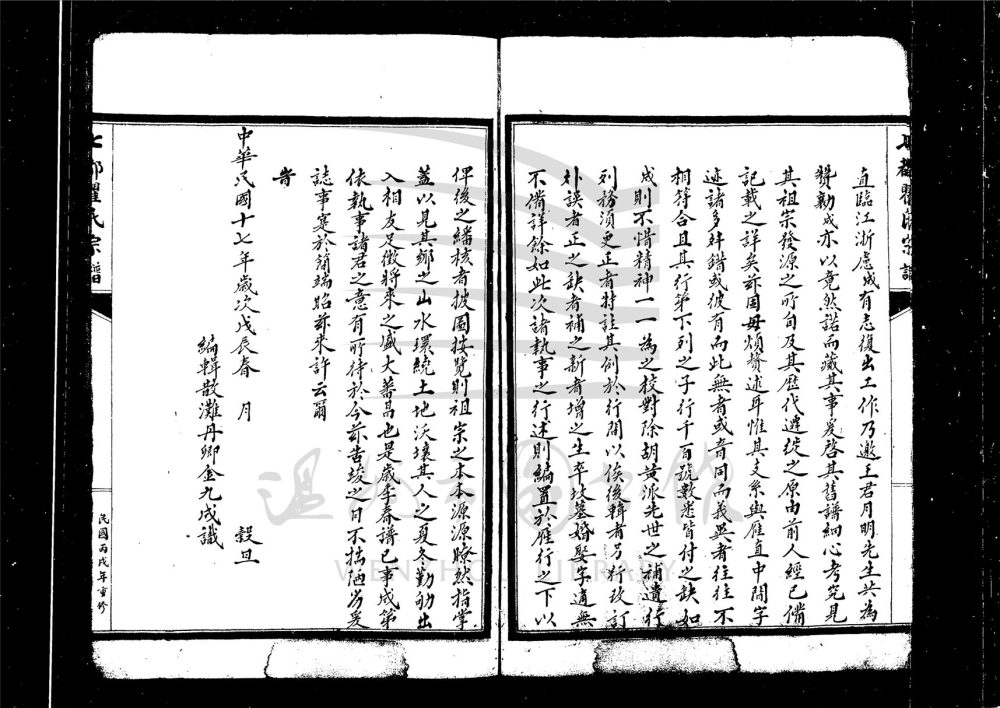 直臨江浙慮成有志復出工作乃邀王君月明先生共為
贊勷成亦以竟然諾而蕆其事爰啓其舊譜細心考究見
其祖宗發源之所自及其歷代遷徙之原由前人經已備
記載之詳矣茲固毋煩贅述耳惟其支系與雁直中間字
迹諸多舛錯或彼有而此無者或音同而義異者往往不
相符合且其行第下列之子行千百號數悉皆付之缺如
成則不惜精神一一為之校對除胡黄派先世之補遺行
列務須更正者特註其例於行間以俟後輯者另行改訂
外誤者正之缺者補之新者增之生卒坟墓婚娶字適無
不備詳餘如此次諸執事之行述則編置於雁行之下以
俾後之繙核者披圖披覽則祖宗之本本源源瞭然指掌
蓋以見其鄉之山水環繞土地沃壤其人之夏冬勤劬出
入相友足徵將來之盛大蕃昌也是歲季春譜已事成第
依執事諸君之意有所待於今茲告竣之日不揣陋劣爰
誌事寔於簡端昭茲來許云爾
旹
中華民國十七年歲次戊辰春 月 穀旦
編輯散灘丹卿金九成識
民國丙戌年重修
七都瞿氏宗譜